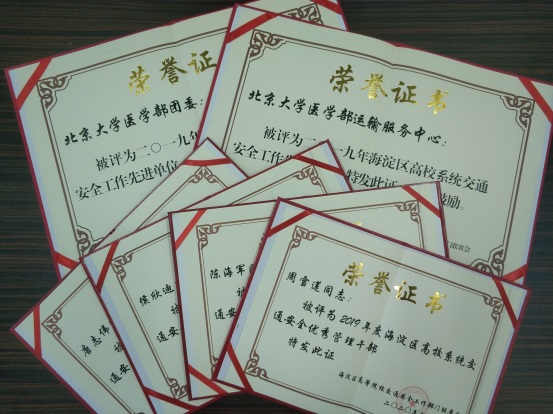 荣誉证
北京大学医学部团委：
被评为二〇一九年
安全工作先进单位
荣誉证书
北京大学医学部运输服务中心：
被评为二〇一九年海淀区高校系统交通
安全工作先
特发此证
鼓励。
陈海军
通安
侯欣迪
被
通安
通安
荣誉证书
周雪莲同志：
被评为2019年度海淀区高校系统交
通安全优秀管理干部
特发此证
二〇二〇年